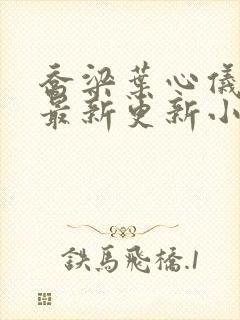 喬梁葉心儀
最新更新小
鉄馬飛橋.1